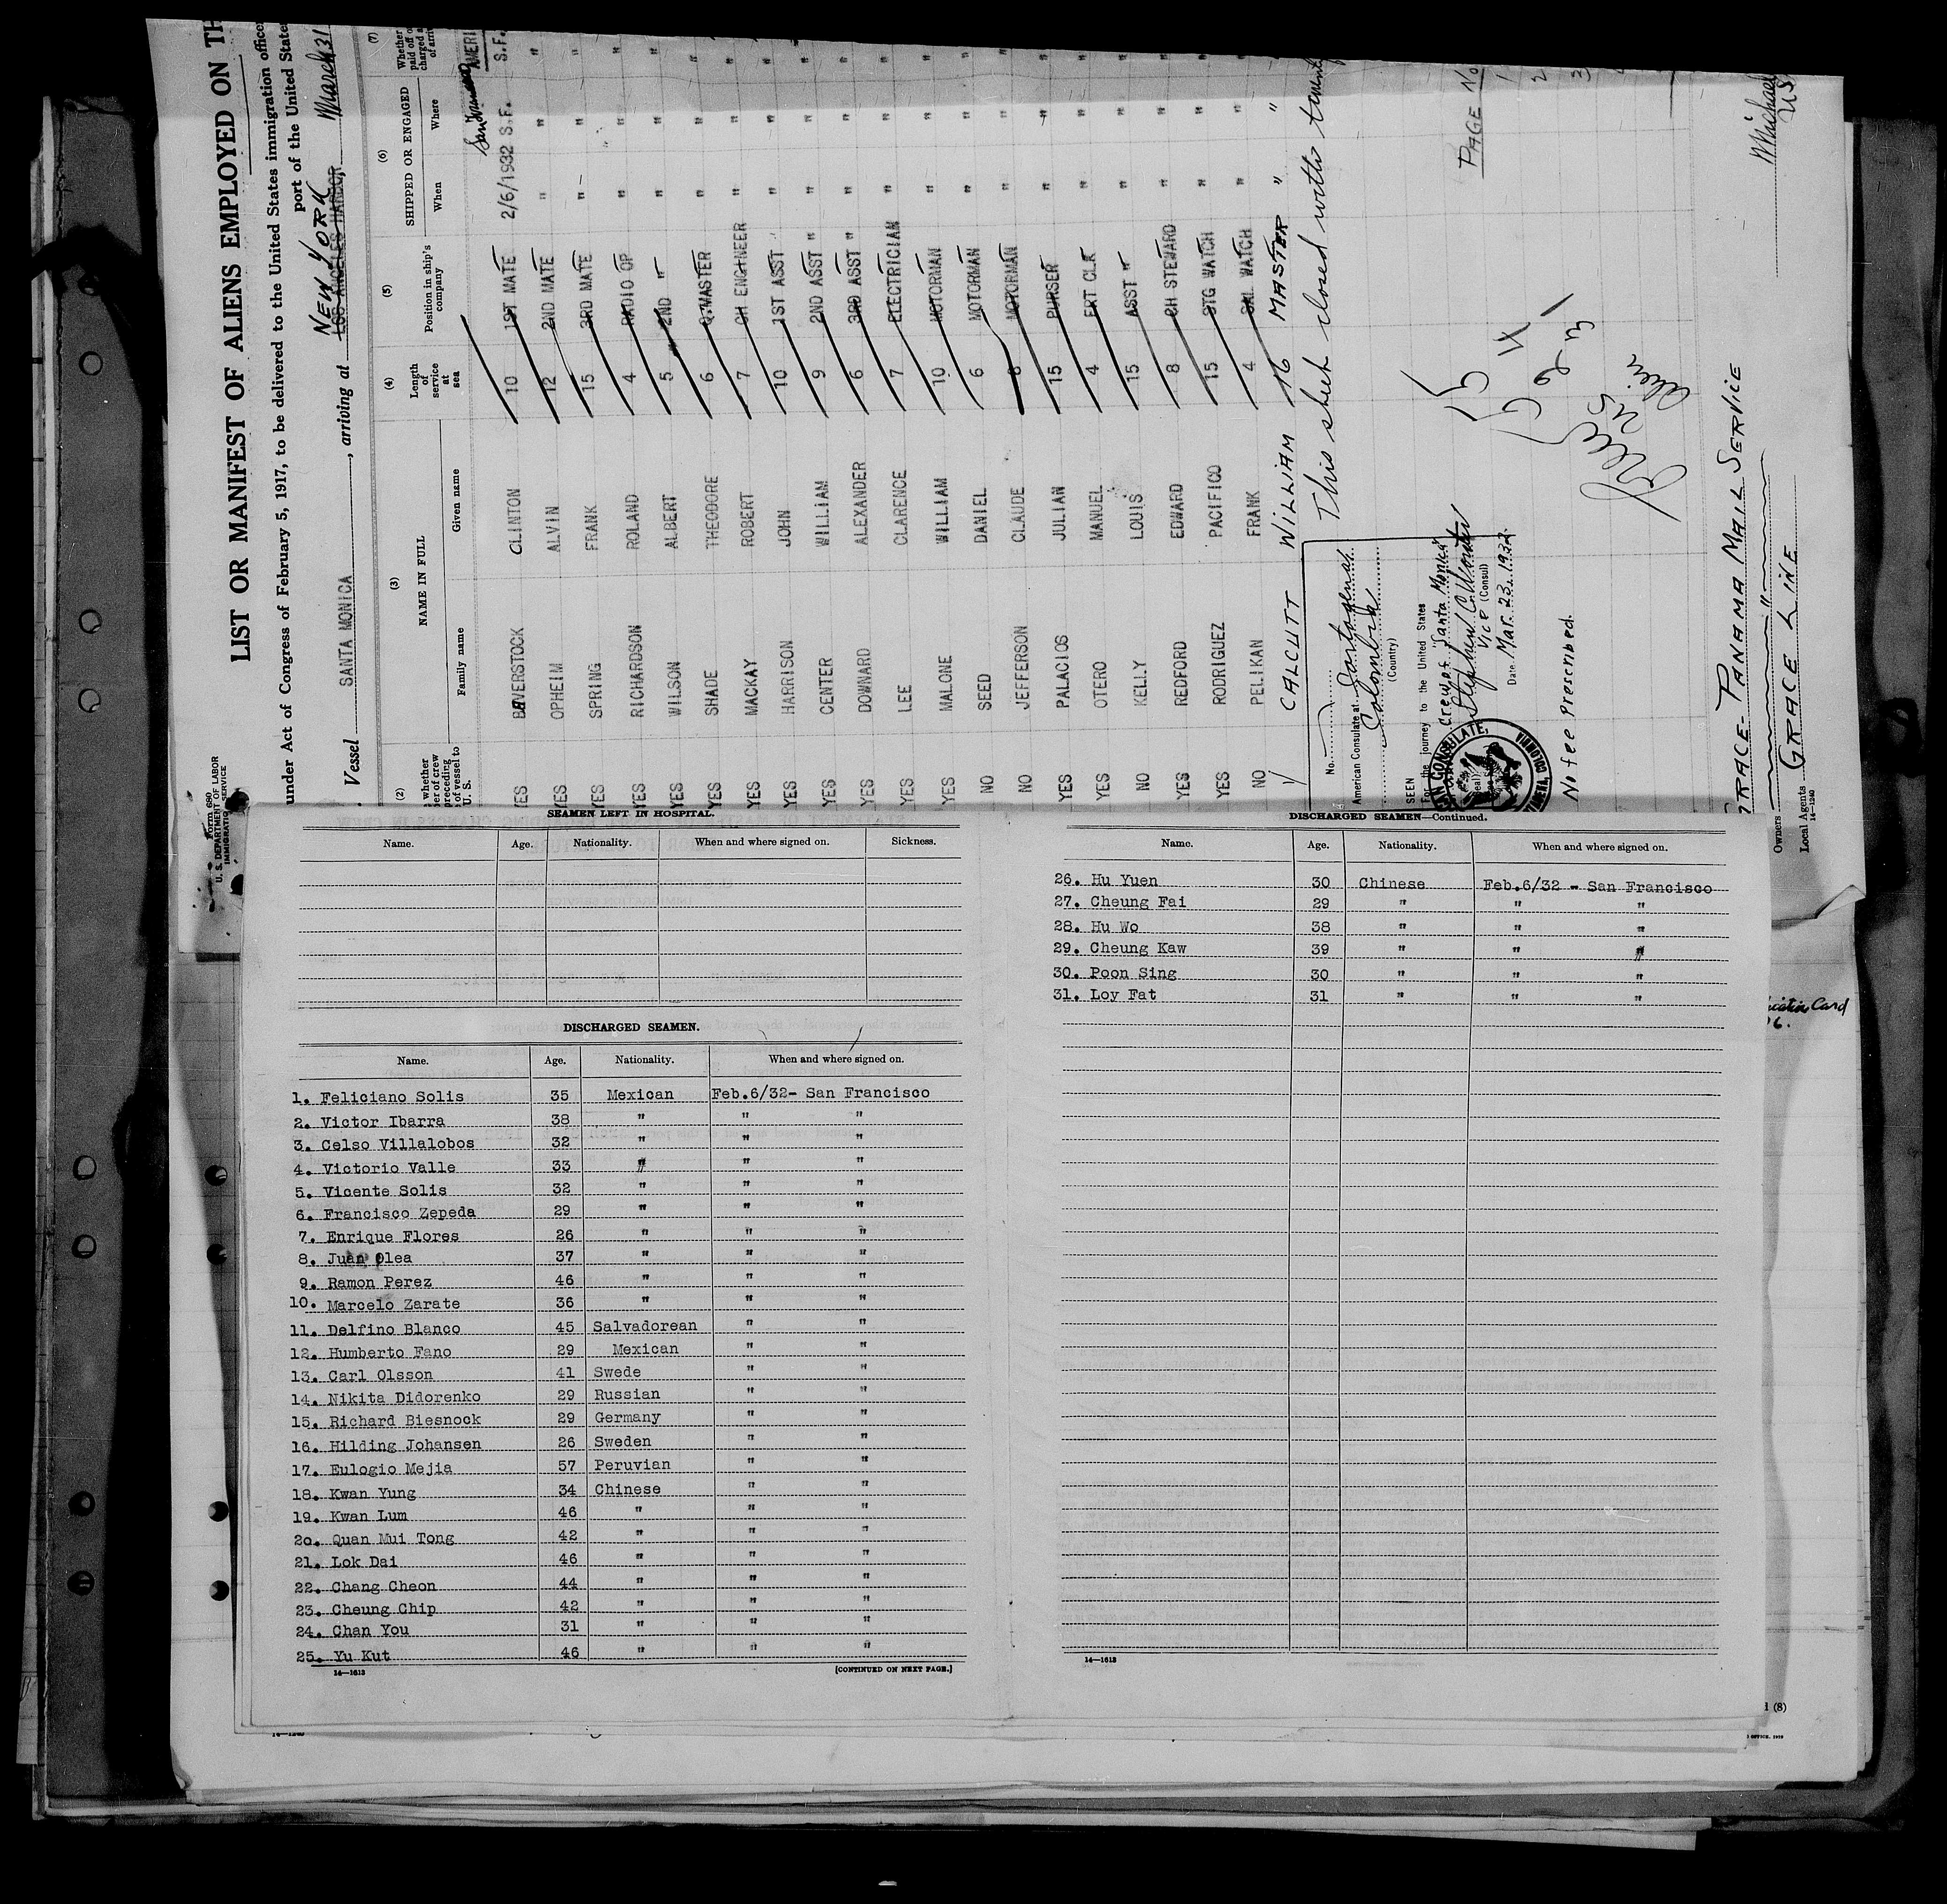 LIST OR MANIFEST OF ALIENS EMPLOYED ON TH
under Act of Congress of February 5, 1917, to be delivered to the United States immigration office
port of the United State
Vessel SANTA MONICA, arriving at LOS ANGELES HARBOR NEW YORK March 31
(2) (3) (4) (5) (6) (7)
whether
er of crew
preceding
of vessel to
U. S.
NAME IN FULL
Family name Given name
Length
of
service
at
sea
Position in ship's
company
SHIPPED OR ENGAGED
When Where
Whether
paid off o
charged a
of arriv
San Francisco AMERI
YES BEVERSTOCK CLINTON 10 1ST MATE 2/6/1932 S.F. S.F.
YES OPHEIM ALVIN 12 2ND MATE " " "
YES SPRING FRANK 15 3RD MATE " " "
YES RICHARDSON ROLAND 4 RADIO OP " " "
YES WILSON ALBERT 5 2ND " " " "
YES SHADE THEODORE 6 Q.MASTER " " "
YES MACKAY ROBERT 7 CH ENGINEER " " "
YES HARRISON JOHN 10 1ST ASST " " " "
YES CENTER WILLIAM 9 2ND ASST " " " "
YES DOWNARD ALEXANDER 6 3RD ASST " " " "
YES LEE CLARENCE 7 ELECTRICIAN " " "
YES MALONE WILLIAM 10 MOTORMAN " " "
NO SEED DANIEL 6 MOTORMAN " " "
NO JEFFERSON CLAUDE 8 MOTORMAN " " "
YES PALACIOS JULIAN 15 PURSER " " "
YES OTERO MANUEL 4 FRT CLK " " "
NO KELLY LOUIS 15 ASST " " " "
YES REDFORD EDWARD 8 CH STEWARD " " "
YES RODRIGUEZ PACIFICO 15 STG WATCH " " "
NO PELIKAN FRANK 4 SAL WATCH " " "
CALCUTT WILLIAM 16 MASTER " "
This sheet closed with
No.
American Consulate at Cartagena
Colombia
(Country)
SEEN
For the journey to the United States
Crew of "Santa Monica"
Vice (Consul)
Date Mar. 23, 1932
CONSULATE,
COLOMBIA
No fee Prescribed.
PAGE No
1
2
3
25
Alien
Michael
US
GRACE-PANAMA MAIL SERVICE
Owners
Local Agents GRACE LINE
14—1240
Form 680
U. S. DEPARTMENT OF LABOR
IMMIGRATION SERVICE
SEAMEN LEFT IN HOSPITAL.
Name. Age. Nationality. When and where signed on. Sickness.
DISCHARGED SEAMEN.
Name. Age. Nationality. When and where signed on.
1. Feliciano Solis 35 Mexican Feb.6/32- San Francisco
2. Victor Ibarra 38 " " "
3. Celso Villalobos 32 " " "
4. Victorio Valle 33 " " "
5. Vicente Solis 32 " " "
6. Francisco Zepeda 29 " " "
7. Enrique Flores 26 " " "
8. Juan Olea 37 " " "
9. Ramon Perez 46 " " "
10. Marcelo Zarate 36 " " "
11. Delfino Blanco 45 Salvadorean " "
12. Humberto Fano 29 Mexican " "
13. Carl Olsson 41 Swede " "
14. Nikita Didorenko 29 Russian " "
15. Richard Biesnock 29 Germany " "
16. Hilding Johansen 26 Sweden " "
17. Eulogio Mejia 57 Peruvian " "
18. Kwan Yung 34 Chinese " "
19. Kwan Lum 46 " " "
20. Quan Mui Tong 42 " " "
21. Lok Dai 46 " " "
22. Chang Cheon 44 " " "
23. Cheung Chip 42 " " "
24. Chan You 31 " " "
25. Yu Kut 46 " " "
14—1613 [CONTINUED ON NEXT PAGE.]
DISCHARGED SEAMEN—Continued.
Name. Age. Nationality. When and where signed on.
26. Hu Yuen 30 Chinese Feb.6/32 - San Francisco
27. Cheung Fai 29 " " "
28. Hu Wo 38 " " "
29. Cheung Kaw 39 " " "
30. Poon Sing 30 " " "
31. Loy Fat 31 " " "
14—1613
Card
(8)